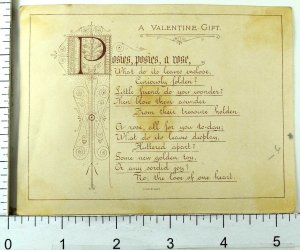 A VALENTINE-GIFT.
Posies, posies, a rose,
What do its leaves enclose,
Curiously folden?
Little friend do you wonder?
Then blow them asunder
From their treasure holden.
A rose, all for you to-day,
What do its leaves display,
Fluttered apart?
Some new golden toy,
Or any sordid joy?
No, the love of one heart.
1
2
3
4
5